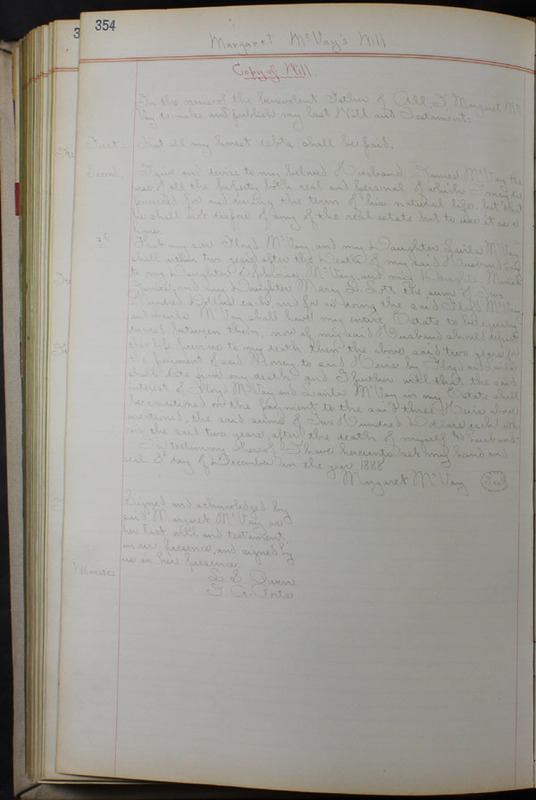 354
Margaret McVay's Will
Copy of Will.
In the name of the benevolent Father of All. I Margaret Mc
Vay do make and publish my last Will and Testament:
First - That all my honest debts shall be paid.
Second. I give and devise to my beloved Husband James McVay the
use of all the property both real and personal of which I may die
for and during the term of his natural life, but that
he shall not dispose of any of the real estate but to use it as a
home.
3d That my son Floyd McVay and my Daughter McVay
shall within two years after the Death of my said Husband pay
to my Daughter McVay, and my Daughter
and my Daughter Mary the sum of Two
Hundred Dollars each and for so doing the said Floyd McVay
and McVay shall have my entire Estate to be equally
between them, now if my said Husband should depart
this life previous to my death then the above said two years for
the payment of said Money to said Heirs by Floyd and
shall date from my death and I further will that the said
interest of Floyd McVay and McVay in my Estate shall
be conditioned on the payment to the said three Heirs above
mentioned, the said sums of Two Hundred Dollars each with
in the said two years after the death of myself & Husband.
In testimony hereof I have hereunto set my hand and
seal 3d day of December in the year 1888
Margaret McVay Seal
Signed and acknowledged by
said Margaret McVay as
her last will and testament
in our presence, and signed by
us in her presence
Witnesses